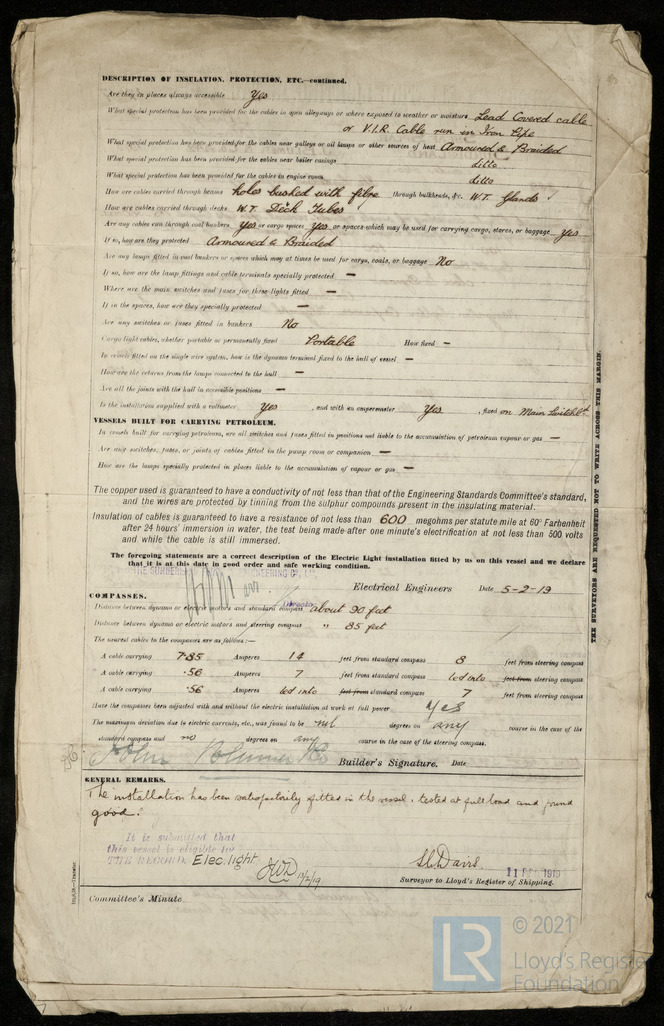 DESCRIPTION OF INSULATION, PROTECTION, ETC.—continued.
Are they in places always accessible Yes
What special protection has been provided for the cables in open alleyways or where exposed to weather or moisture Lead Covered cable
or V.I.R. Cable run in Iron Pipe
What special protection has been provided for the cables near galleys or oil lamps or other sources of heat Armoured & Braided
What special protection has been provided for the cables near boiler casings ditto
What special protection has been provided for the cables in engine room ditto
How are cables carried through beams holes bushed with fibre through bulkheads, &c. W.T. Glands
How are cables carried through decks W.T. Deck Tubes
Are any cables run through coal bunkers Yes or cargo spaces Yes or spaces which may be used for carrying cargo, stores, or baggage Yes
If so, how are they protected Armoured & Braided
Are any lamps fitted in coal bunkers or spaces which may at times be used for cargo, coals, or baggage No
If so, how are the lamp fittings and cable terminals specially protected —
Where are the main switches and fuses for these lights fitted —
If in the spaces, how are they specially protected —
Are any switches or fuses fitted in bunkers No
Cargo light cables, whether portable or permanently fixed Portable How fixed —
In vessels fitted on the single wire system, how is the dynamo terminal fixed to the hull of vessel —
How are the returns from the lamps connected to the hull —
Are all the joints with the hull in accessible positions —
Is the installation supplied with a voltmeter Yes , and with an amperemeter Yes , fixed on Main Switchbd
VESSELS BUILT FOR CARRYING PETROLEUM.
In vessels built for carrying petroleum, are all switches and fuses fitted in positions not liable to the accumulation of petroleum vapour or gas —
Are any switches, fuses, or joints of cables fitted in the pump room or companion —
How are the lamps specially protected in places liable to the accumulation of vapour or gas —
The copper used is guaranteed to have a conductivity of not less than that of the Engineering Standards Committee's standard,
and the wires are protected by tinning from the sulphur compounds present in the insulating material.
Insulation of cables is guaranteed to have a resistance of not less than 600 megohms per statute mile at 60° Farhenheit
after 24 hours' immersion in water, the test being made after one minute's electrification at not less than 500 volts
and while the cable is still immersed.
The foregoing statements are a correct description of the Electric Light installation fitted by us on this vessel and we declare
that it is at this date in good order and safe working condition.
Electrical Engineers Date 5-2-19
Director
COMPASSES.
Distance between dynamo or electric motors and standard compass about 90 feet
Distance between dynamo or electric motors and steering compass " 85 feet
The nearest cables to the compasses are as follows:—
A cable carrying 7.85 Amperes 14 feet from standard compass 8 feet from steering compass
A cable carrying .56 Amperes 7 feet from standard compass led into feet from steering compass
A cable carrying .56 Amperes led into feet from standard compass 7 feet from steering compass
Have the compasses been adjusted with and without the electric installation at work at full power Yes
The maximum deviation due to electric currents, etc., was found to be nil degrees on any course in the case of the
standard compass and nil degrees on any course in the case of the steering compass.
John Builder's Signature. Date
GENERAL REMARKS.
The installation has been satisfactorily fitted in the vessel, tested at full load and found
good.
It is submitted that
this vessel is eligible for
THE RECORD. Elec. light
13/2/19
11 1919
Surveyor to Lloyd's Register of Shipping.
Committee's Minute
THE SURVEYORS ARE REQUESTED NOT TO WRITE ACROSS THIS MARGIN.
LR
© 2021
Lloyd's Register
Foundation